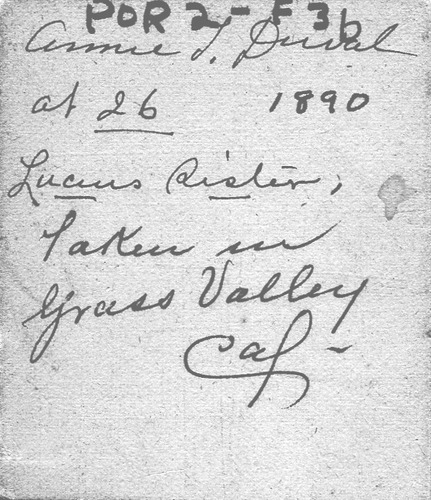 POR 2 - F 3b
Annie L. Duval
at 26 1890
Lucius Sister,
Taken in
Grass Valley
Cal -